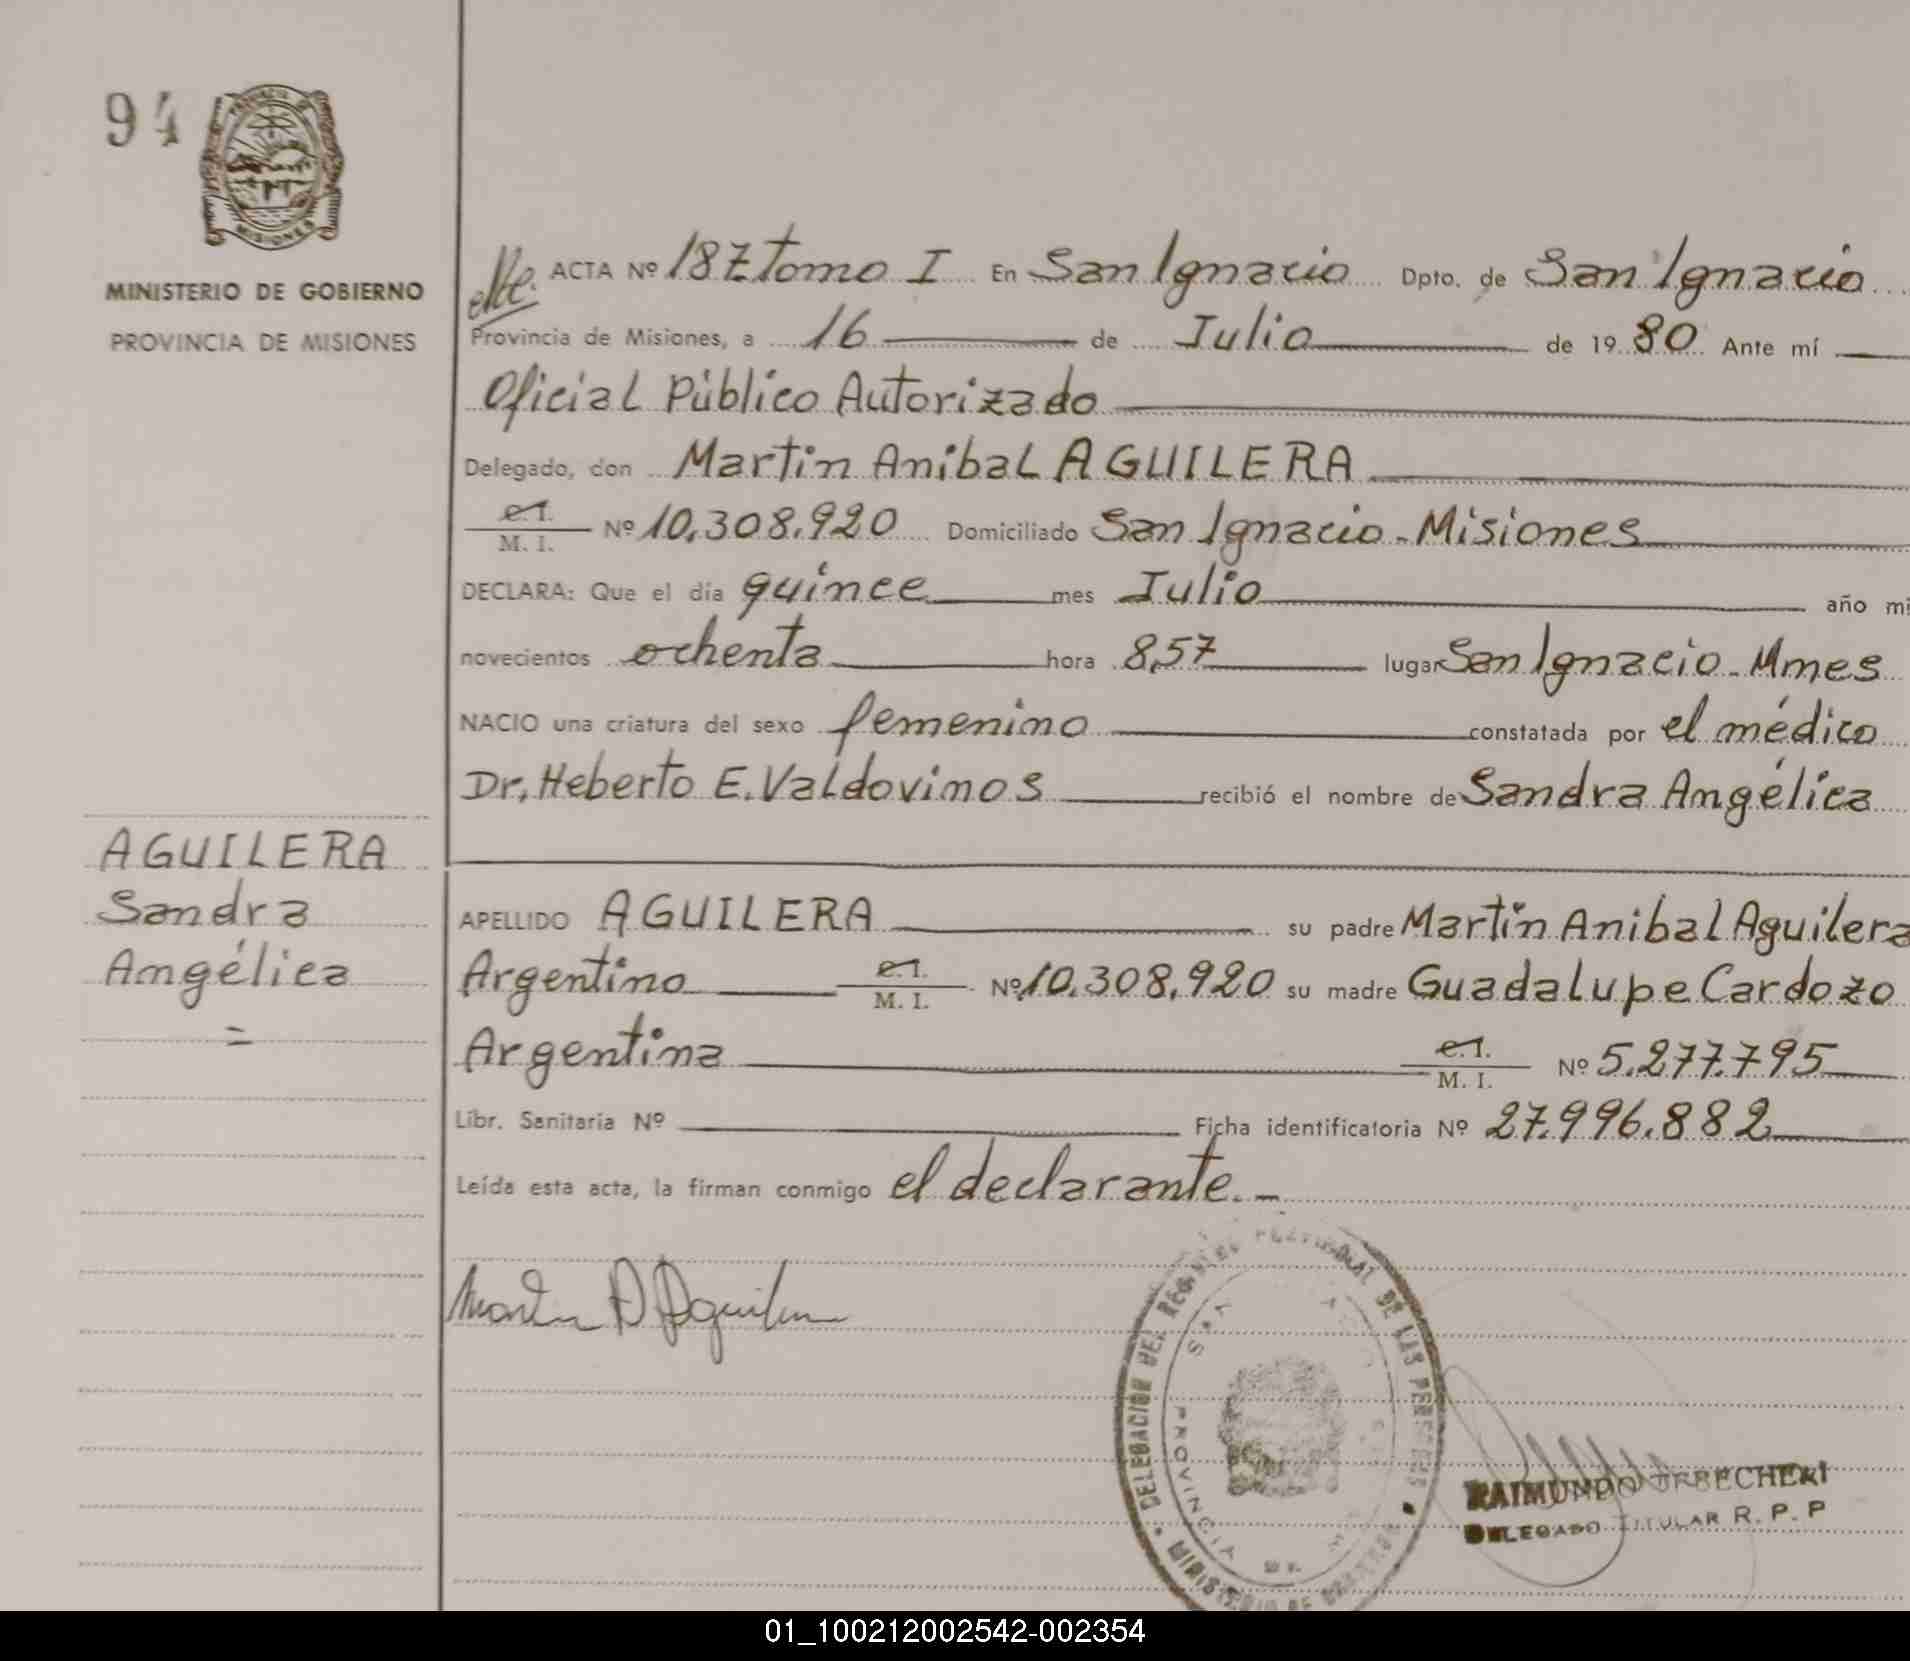 94
PROVINCIA DE
MISIONES
MINISTERIO DE GOBIERNO
PROVINCIA DE MISIONES
ACTA Nº 187 tomo I En San Ignacio Dpto. de San Ignacio
Provincia de Misiones, a 16 de Julio de 19 80 Ante mí
Oficial Público Autorizado
Delegado, don Martin Anibal AGUILERA
C.I.
M. I. Nº 10.308.920 Domiciliado San Ignacio - Misiones
DECLARA: Que el día quince mes Julio año mi
novecientos ochenta hora 8,57 lugar San Ignacio - Mnes
NACIO una criatura del sexo femenino constatada por el médico
Dr. Heberto E. Valdovinos recibió el nombre de Sandra Angélica
AGUILERA
Sandra
Angélica
=
APELLIDO AGUILERA su padre Martin Anibal Aguilera
Argentino C.I.
M. I. Nº 10.308.920 su madre Guadalupe Cardozo
Argentina C.I.
M. I. Nº 5.277.795
Libr. Sanitaria Nº Ficha identificatoria Nº 27.996.882
Leída esta acta, la firman conmigo el declarante. -
Martin A Aguilera
DELEGACION DEL REGISTRO PROVINCIAL DE LAS PERSONAS
SAN IGNACIO
PROVINCIA DE
MINISTERIO DE GOBIERNO
RAIMUNDO
DELEGADO TITULAR R. P. P
01_100212002542-002354